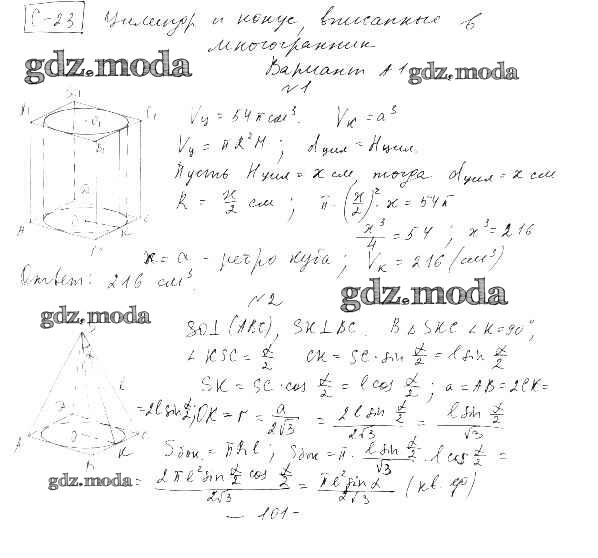 С-23 Цилиндр и конус, вписанные в
многогранник
gdz.moda
Вариант А1
gdz.moda
№1
Vц = 54π см³. Vк = a³
Vц = πR²H ; dцил = Hцил.
Пусть Hцил = x см, тогда dцил = x см
R = x/2 см ; π·(x/2)²·x = 54π
x³/4 = 54 ; x³ = 216
x = a - ребро куба ; Vк = 216 (см³)
Ответ: 216 см³.
№2
gdz.moda
gdz.moda
SO⊥(ABC), SK⊥BC. В △SKC ∠K=90°,
∠KSC = α/2 CK = SC·sin α/2 = l sin α/2
SK = SC·cos α/2 = l cos α/2 ; a = AB = 2CK =
= 2l sin α/2 ; OK = r = a/2√3 = 2l sin α/2 / 2√3 = l sin α/2 / √3
Sбок. = πRl ; Sбок = π· l sin α/2 / √3 · l cos α/2 =
gdz.moda
= 2πl² sin α/2 cos α/2 / 2√3 = πl² sin α / 2√3 (кв. ед)
- 101 -